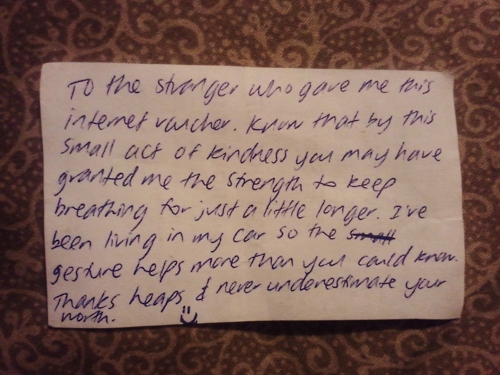 To the stranger who gave me this
internet voucher. Know that by this
small act of kindness you may have
granted me the strength to keep
breathing for just a little longer. I've
been living in my car so the small
gesture helps more than you could know.
Thanks heaps & never underestimate your
worth.